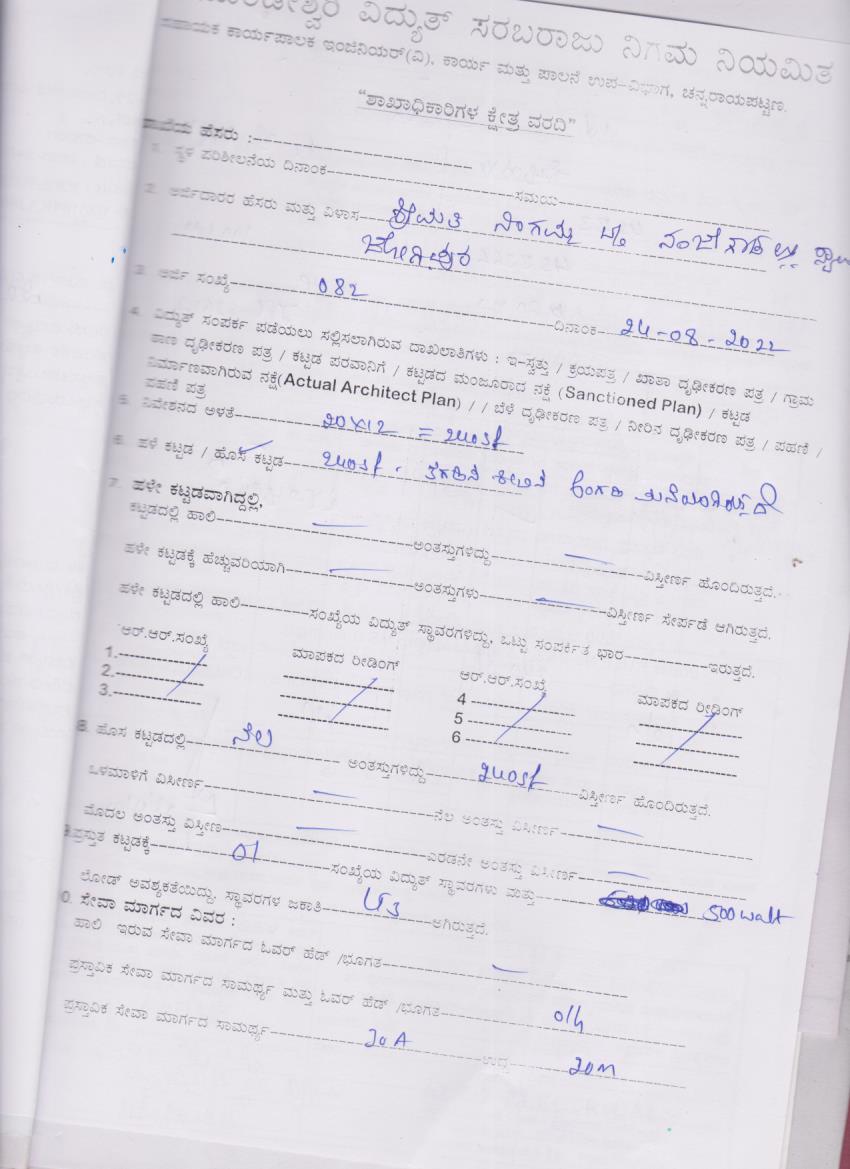 ವಿದ್ಯುತ್ ಸರಬರಾಜು ನಿಗಮ ನಿಯಮಿತ
ಸಹಾಯಕ ಕಾರ್ಯಪಾಲಕ ಇಂಜಿನಿಯರ್(ವಿ), ಕಾರ್ಯ ಮತ್ತು ಪಾಲನೆ ಉಪ-ವಿಭಾಗ, ಚನ್ನರಾಯಪಟ್ಟಣ.
"ಶಾಖಾಧಿಕಾರಿಗಳ ಕ್ಷೇತ್ರ ವರದಿ"
ಹೆಸರು :
1. ಸ್ಥಳ ಪರಿಶೀಲನೆಯ ದಿನಾಂಕ ಸಮಯ
2. ಅರ್ಜಿದಾರರ ಹೆಸರು ಮತ್ತು ವಿಳಾಸ ಶ್ರೀಮತಿ ನಾಗಮ್ಮ
3. ಅರ್ಜಿ ಸಂಖ್ಯೆ 082 ದಿನಾಂಕ 24-08-2022
4. ವಿದ್ಯುತ್ ಸಂಪರ್ಕ ಪಡೆಯಲು ಸಲ್ಲಿಸಲಾಗಿರುವ ದಾಖಲಾತಿಗಳು : ಇ-ಸ್ವತ್ತು / ಕ್ರಯಪತ್ರ / ಖಾತಾ ದೃಢೀಕರಣ ಪತ್ರ / ಗ್ರಾಮ
ಠಾಣ ದೃಢೀಕರಣ ಪತ್ರ / ಕಟ್ಟಡ ಪರವಾನಿಗೆ / ಕಟ್ಟಡದ ಮಂಜೂರಾದ ನಕ್ಷೆ (Sanctioned Plan) / ಕಟ್ಟಡ
ನಿರ್ಮಾಣವಾಗಿರುವ ನಕ್ಷೆ(Actual Architect Plan) / / ಬೆಳೆ ದೃಢೀಕರಣ ಪತ್ರ / ನೀರಿನ ದೃಢೀಕರಣ ಪತ್ರ / ಪಹಣಿ /
ಪಹಣಿ ಪತ್ರ
5. ನಿವೇಶನದ ಅಳತೆ 20x12 = 240sf
6. ಹಳೆ ಕಟ್ಟಡ / ಹೊಸ ಕಟ್ಟಡ 240sf.
7. ಹಳೇ ಕಟ್ಟಡವಾಗಿದ್ದಲ್ಲಿ,
ಕಟ್ಟಡದಲ್ಲಿ ಹಾಲಿ ಅಂತಸ್ತುಗಳಿದ್ದು ವಿಸ್ತೀರ್ಣ ಹೊಂದಿರುತ್ತದೆ.
ಹಳೇ ಕಟ್ಟಡಕ್ಕೆ ಹೆಚ್ಚುವರಿಯಾಗಿ ಅಂತಸ್ತುಗಳು ವಿಸ್ತೀರ್ಣ ಸೇರ್ಪಡೆ ಆಗಿರುತ್ತದೆ.
ಹಳೇ ಕಟ್ಟಡದಲ್ಲಿ ಹಾಲಿ ಸಂಖ್ಯೆಯ ವಿದ್ಯುತ್ ಸ್ಥಾವರಗಳಿದ್ದು, ಒಟ್ಟು ಸಂಪರ್ಕಿತ ಭಾರ ಇರುತ್ತದೆ.
ಆರ್.ಆರ್.ಸಂಖ್ಯೆ ಮಾಪಕದ ರೀಡಿಂಗ್ ಆರ್.ಆರ್.ಸಂಖ್ಯೆ ಮಾಪಕದ ರೀಡಿಂಗ್
1. 4
2. 5
3. 6
8. ಹೊಸ ಕಟ್ಟಡದಲ್ಲಿ ನೆಲ ಅಂತಸ್ತುಗಳಿದ್ದು 240sf ವಿಸ್ತೀರ್ಣ ಹೊಂದಿರುತ್ತದೆ.
ಒಳಮಾಳಿಗೆ ವಿಸೀರ್ಣ ನೆಲ ಅಂತಸ್ತು ವಿಸೀರ್ಣ
ಮೊದಲ ಅಂತಸ್ತು ವಿಸ್ತೀಣ ಎರಡನೇ ಅಂತಸ್ತು ವಿಸೀರ್ಣ
9.ಪ್ರಸ್ತುತ ಕಟ್ಟಡಕ್ಕೆ 01 ಸಂಖ್ಯೆಯ ವಿದ್ಯುತ್ ಸ್ಥಾವರಗಳು ಮತ್ತು 500 walt
ಲೋಡ್ ಅವಶ್ಯಕತೆಯಿದ್ದು, ಸ್ಥಾವರಗಳ ಜಕಾತಿ ಆಗಿರುತ್ತದೆ.
0. ಸೇವಾ ಮಾರ್ಗದ ವಿವರ :
ಹಾಲಿ ಇರುವ ಸೇವಾ ಮಾರ್ಗದ ಓವರ್ ಹೆಡ್ /ಭೂಗತ
ಪ್ರಸ್ತಾವಿಕ ಸೇವಾ ಮಾರ್ಗದ ಸಾಮರ್ಥ್ಯ ಮತ್ತು ಓವರ್ ಹೆಡ್ /ಭೂಗತ o/h
ಪ್ರಸ್ತಾವಿಕ ಸೇವಾ ಮಾರ್ಗದ ಸಾಮರ್ಥ್ಯ 20A ಉದ್ದ 20m